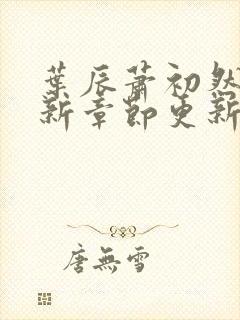 葉辰蕭初然
新章節更新
唐無雪